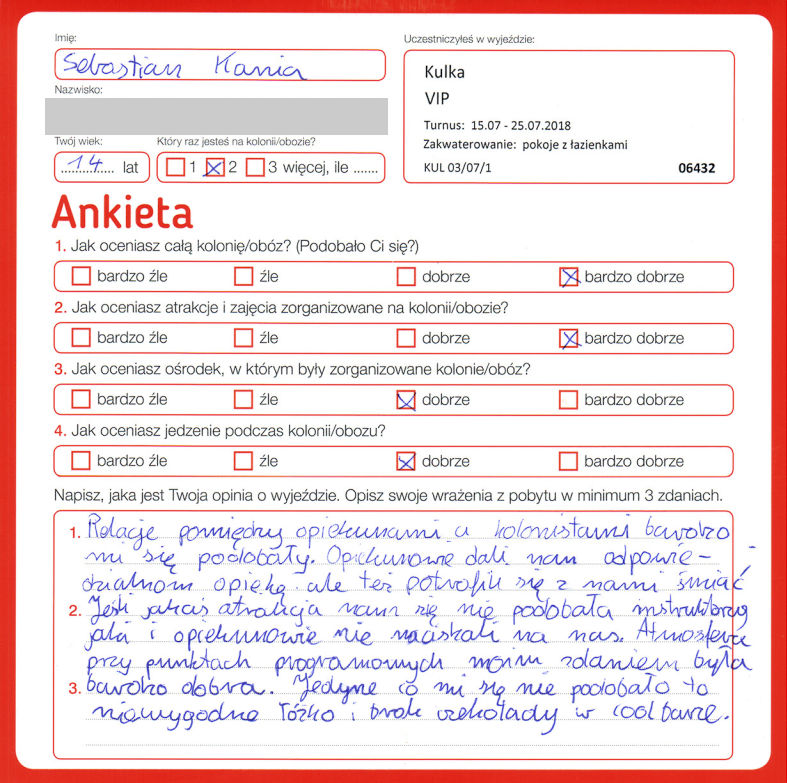 Imię:
Sebastian Kania
Nazwisko:
Twój wiek:
Który raz jesteś na kolonii/obozie?
14 lat
1 2 3 więcej, ile .......
Uczestniczyłeś w wyjeździe:
Kulka
VIP
Turnus: 15.07 - 25.07.2018
Zakwaterowanie: pokoje z łazienkami
KUL 03/07/1 06432
Ankieta
1. Jak oceniasz całą kolonię/obóz? (Podobało Ci się?)
bardzo źle źle dobrze bardzo dobrze
2. Jak oceniasz atrakcje i zajęcia zorganizowane na kolonii/obozie?
bardzo źle źle dobrze bardzo dobrze
3. Jak oceniasz ośrodek, w którym były zorganizowane kolonie/obóz?
bardzo źle źle dobrze bardzo dobrze
4. Jak oceniasz jedzenie podczas kolonii/obozu?
bardzo źle źle dobrze bardzo dobrze
Napisz, jaka jest Twoja opinia o wyjeździe. Opisz swoje wrażenia z pobytu w minimum 3 zdaniach.
1. Relacje pomiędzy opiekunami a kolonistami bardzo
mi się podobały. Opiekunowie dali nam odpowie-
dzialnom opiekę ale też potrafili się z nami śmiać
2. Jeśli jakaś atrakcja nam się nie podobała instruktorzy
jak i opiekunowie nie naciskali na nas. Atmosfera
przy punktach programowych moim zdaniem była
3. bardzo dobra. Jedyne co mi się nie podobało to
niewygodne łóżko i brak czekolady w cool barze.